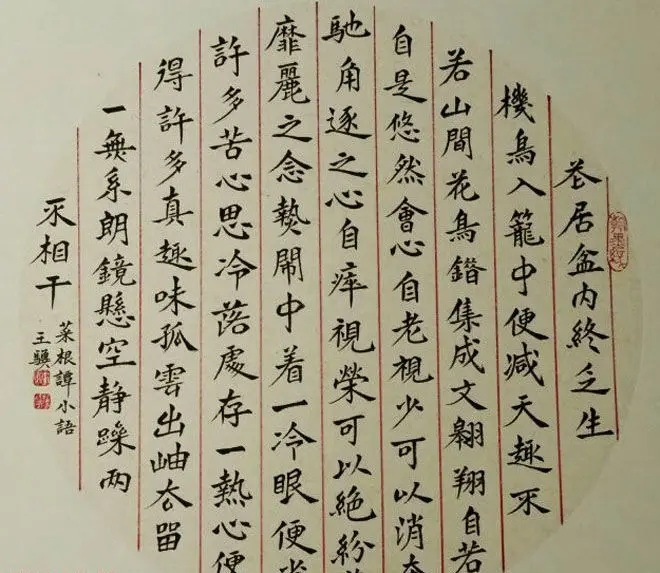 花居盆内終乏生
機鳥入籠中便减天趣不
若山間花鳥錯集成文翱翔自若
自是悠然會心自老視少可以消
馳角逐之心自瘁視榮可以絶紛
靡麗之念熱鬧中着一冷眼便
許多苦心思冷落處存一熱心便
得許多真趣味孤雲出岫去留
一無系朗鏡懸空静躁两
不相干
菜根譚小語
王驥